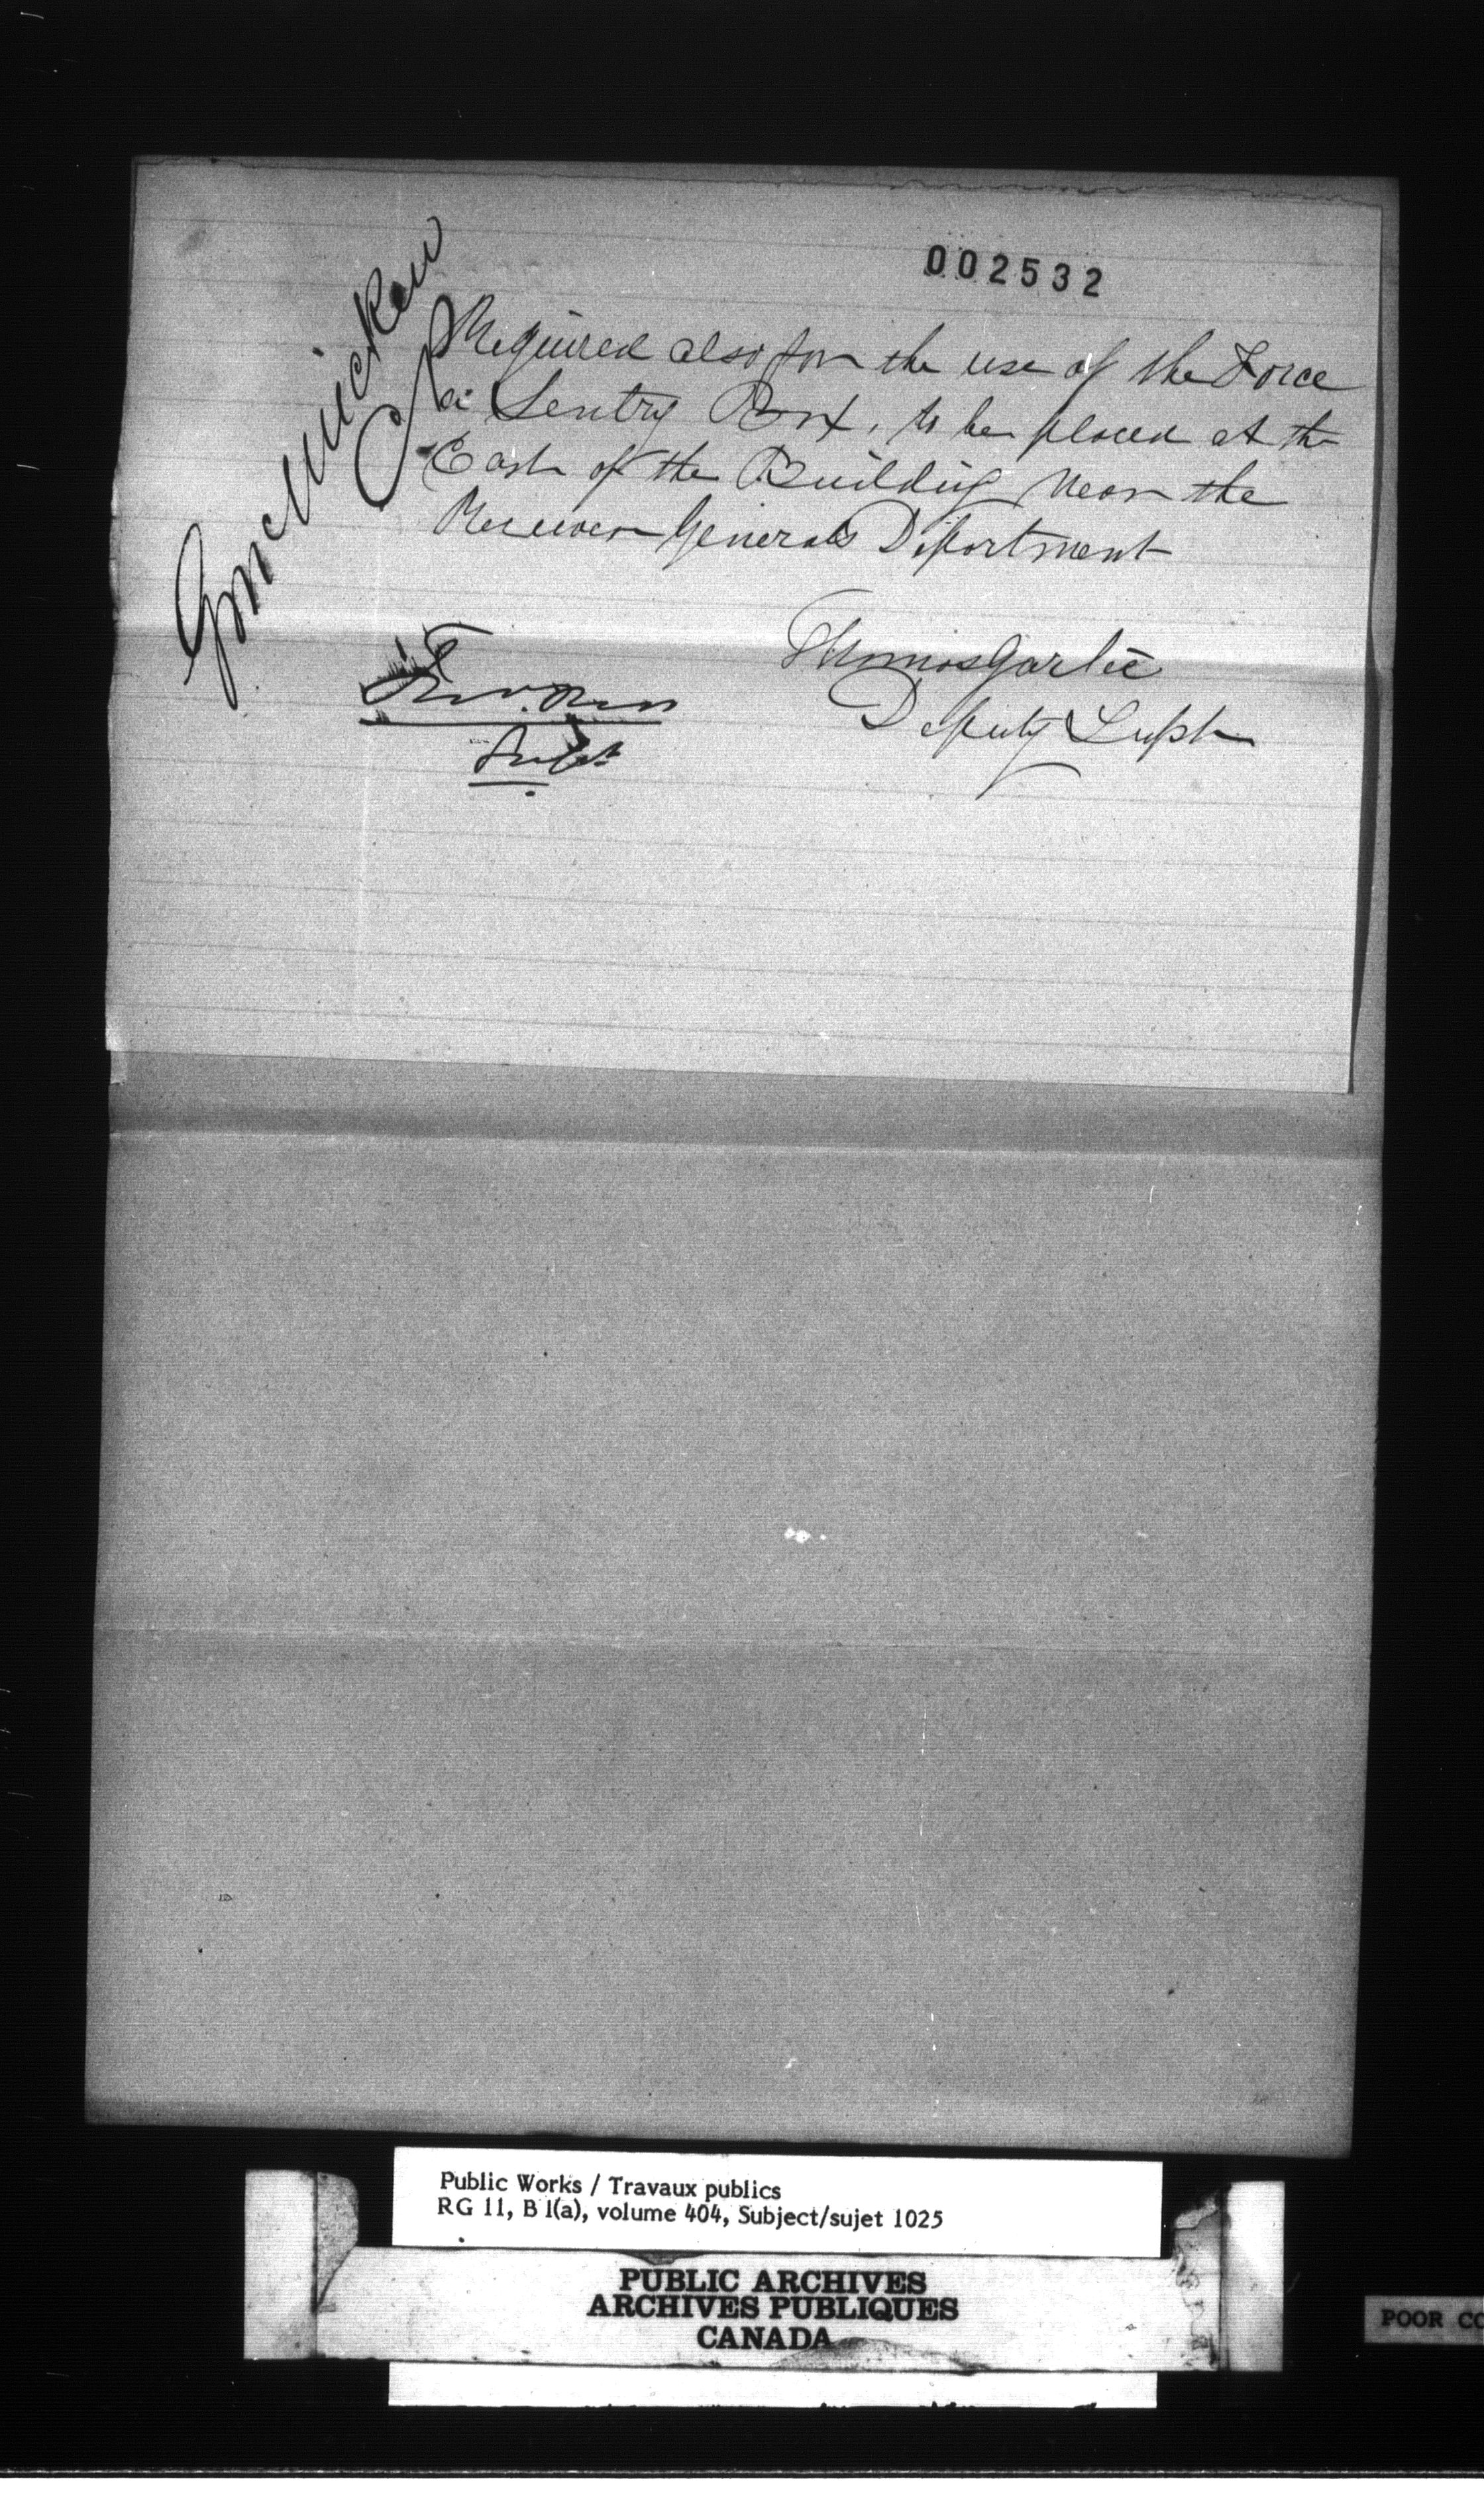 002532
Required also for the use of the Force
a Sentry Box, to be placed at the
East of the Building near the
Receiver Generals Department
GMcMicken
Thomas Garlic
Deputy Supt
Supt
Public Works / Travaux publics
RG 11, B 1(a), volume 404, Subject/sujet 1025
PUBLIC ARCHIVES
ARCHIVES PUBLIQUES
CANADA
POOR